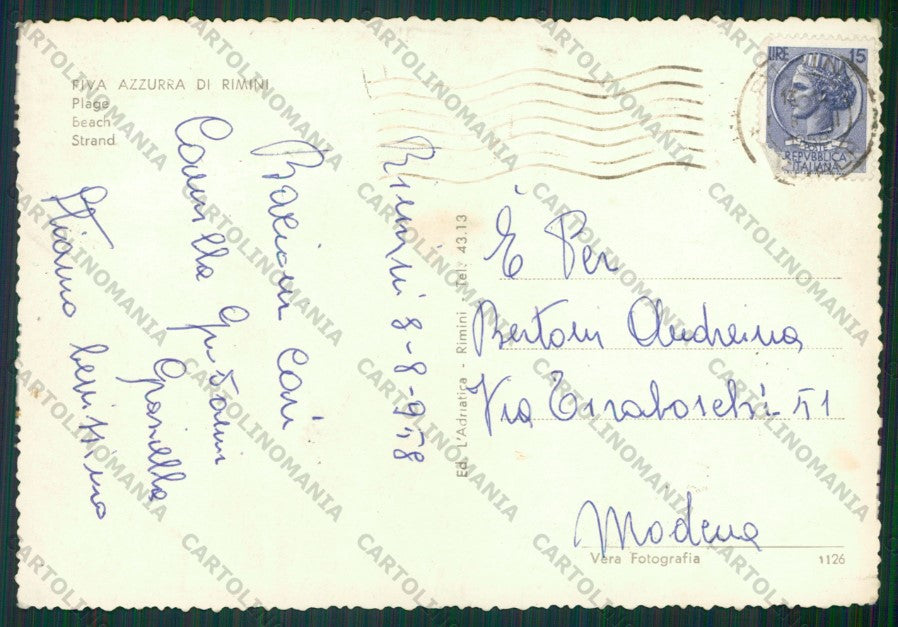 RIVA AZZURRA DI RIMINI
Plage
Beach
Strand
Rimini 8-8-958
Bacioni cari
Camilla
Stiamo benissimo
Ed. L'Adriatica - Rimini Tel. 43.13
LIRE 15
POSTE
REPVBBLICA
ITALIANA
È Per
Bertoni Andreina
Via Tiraboschi 51
Modena
Vera Fotografia
1126
CARTOLINOMANIA